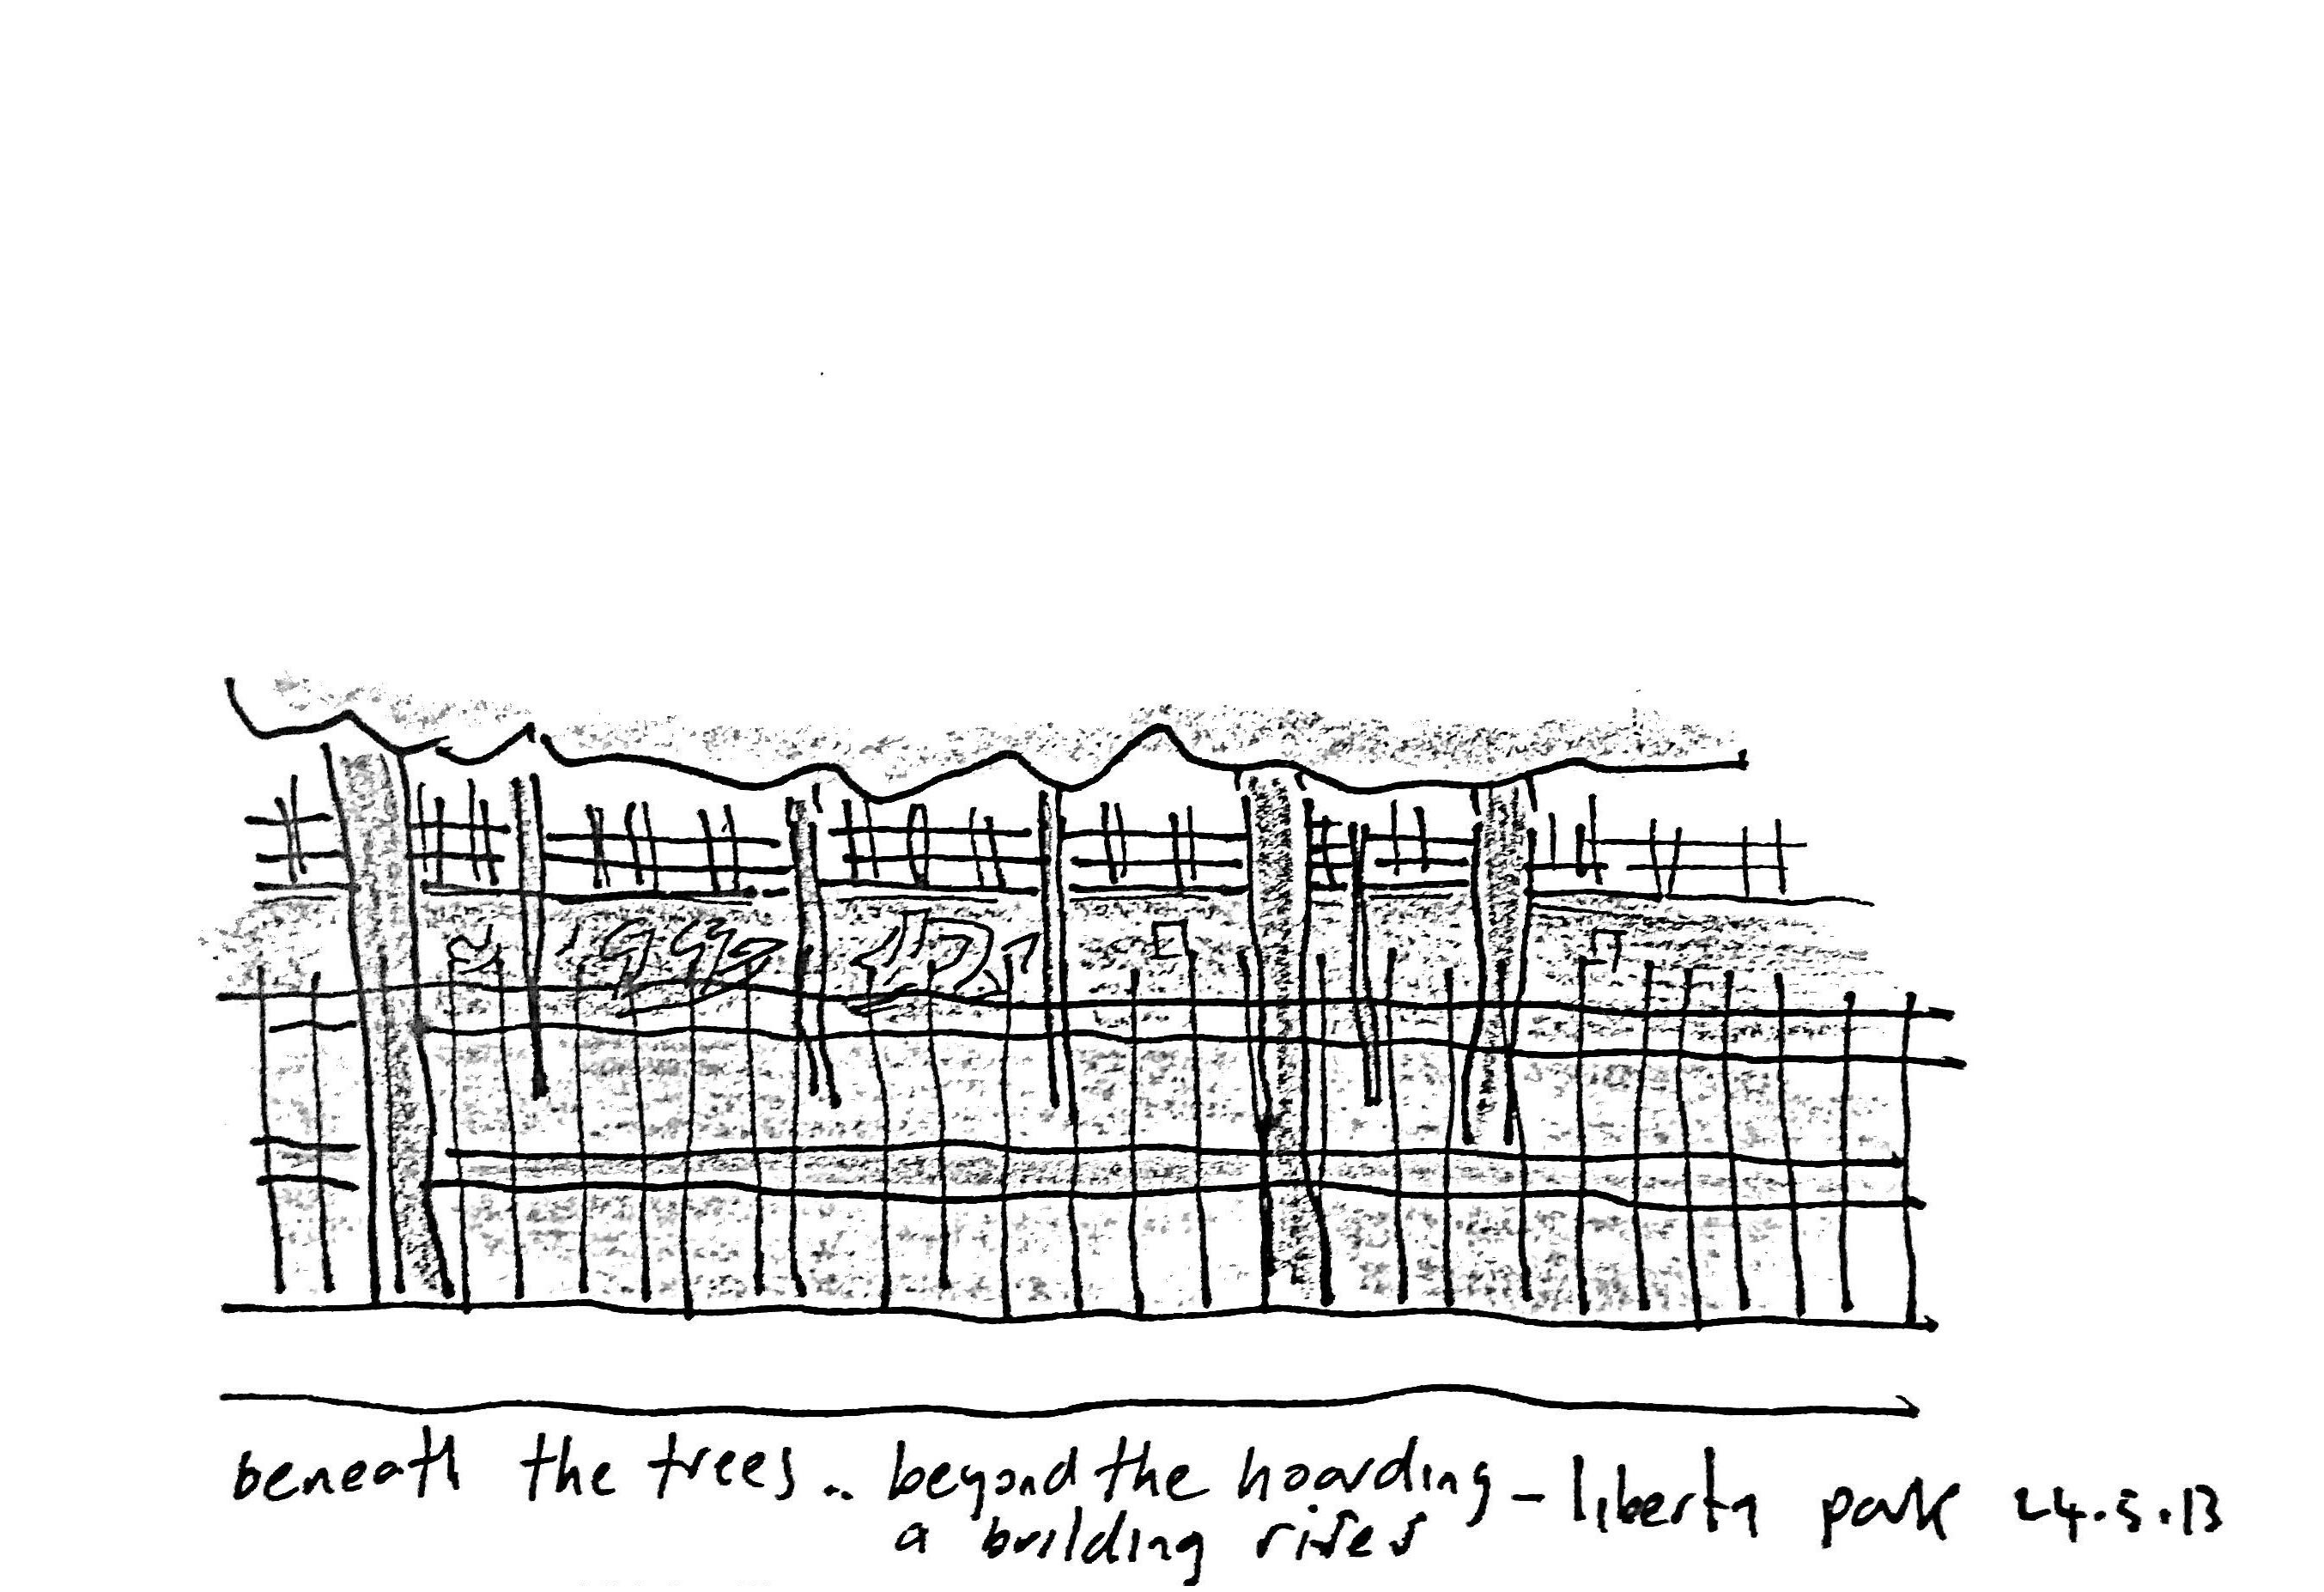 beneath the trees.. beyond the hoarding - liberty park 24.5.13
a building rises